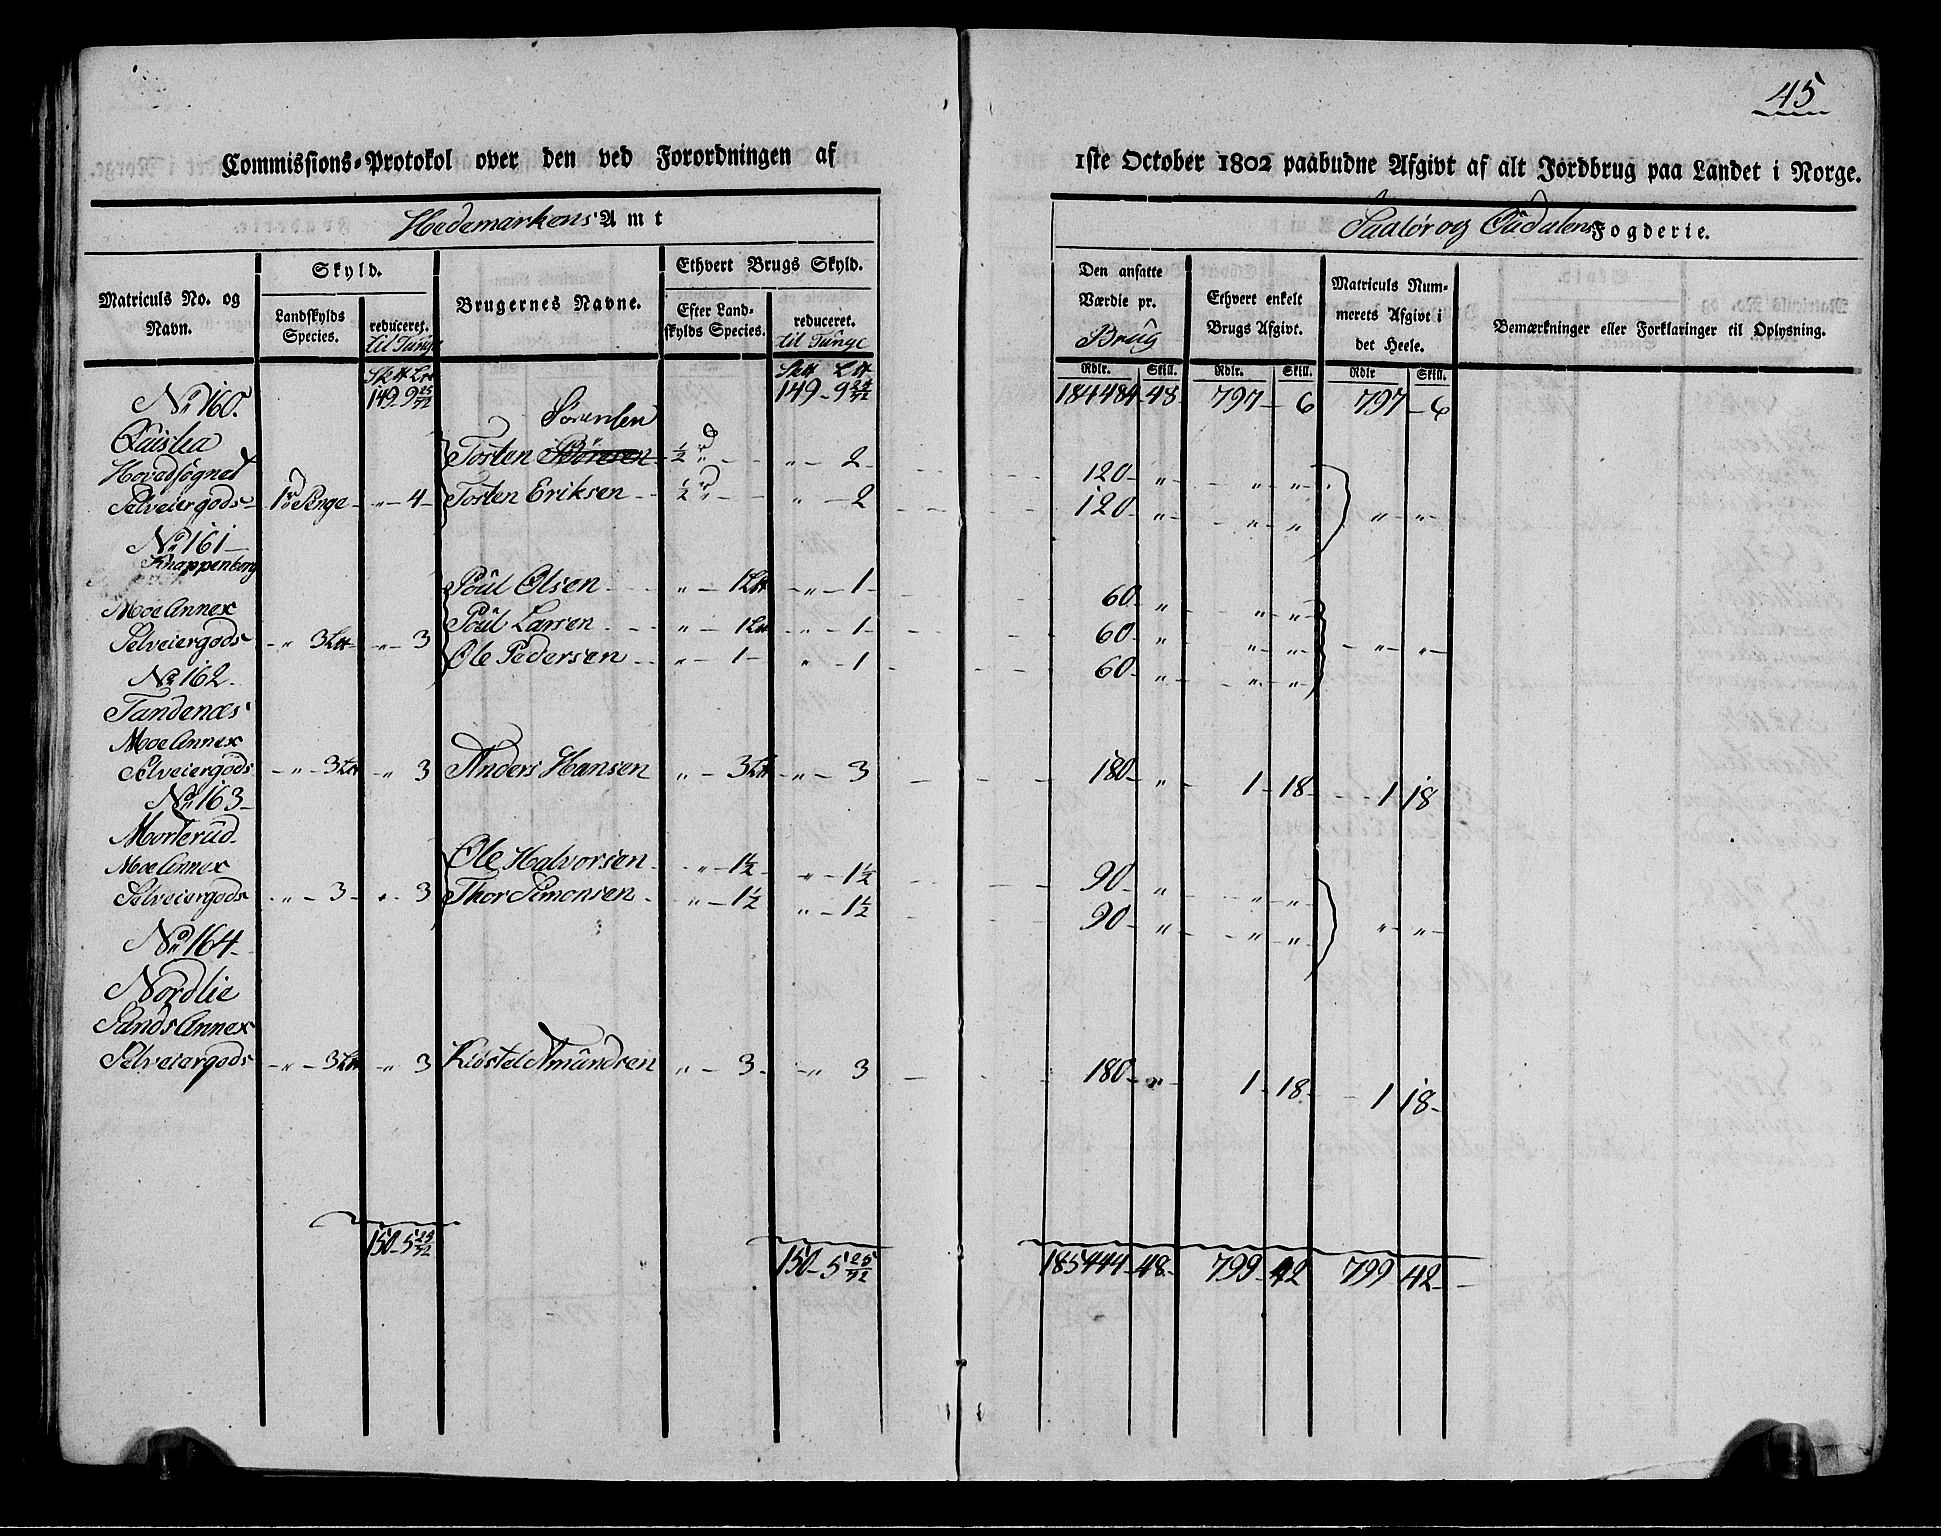 45
Commissions-Protokol over den ved Forordningen af 1ste October 1802 paabudne Afgivt af alt Jordbrug paa Landet i Norge.
Hedemarkens Amt
Soløer og Oudalens Fogderie.
Matriculs No. og Navn.
Skyld.
Landskylds Species.
reduceret. til Tunge
Brugernes Navne.
Ethvert Brugs Skyld.
Efter Landskylds Species.
reduceret. til Tunge
Den ansatte Værdie pr. Brug
Ethvert enkelt Brugs Afgivt.
Matriculs Nummerets Afgivt i det Heele.
Bemærkninger eller Forklaringer til Oplysning.
Rdlr. Skill. Rdlr. Skill. Rdlr Skill.
149 9 149 - 9 184484 - 48 - 797 - 6 797 - 6
No 160.
Hovedsognet
Sørensen
Torsten ½ " - 2 - 120 - " - " - "
Selveiergods - 1 Penge - " - 4 - Torsten Eriksen - ½ " - 2 120 - " - " - " " - "
No 161 -
Knappenberg
Moe Annex
Poul Olsen - " - 1 L - " - 1 - 60 - " - " - "
Poul Larsen - " - 1 L - " - 1 - 60 - " - " - "
Selveiergods - " 3 L - " - 3 Ole Pedersen - " - 1 - " - 1 - 60 - " - " - " - " - "
No 162 -
Tandenæs
Moe Annex
Selveiergods - " - 3 L - " 3 Anders Hansen " - 3 L - " - 3 180 - " - 1 - 18 - 1 18
No 163 -
Morterud
Moe Annex
Ole Halvorsen - " - 1½ - " - 1½ 90 - " - " - "
Selveiergods - " - 3 - " - 3 Thor Simonsen - " - 1½ " - 1½ 90 - " - " - " " - "
No 164 -
Nordlie
Sands Annex
Selveiergods - " - 3 L - " 3 Kiøstel Amundsen " - 3 - " 3 180 - " - 1 - 18 - 1 18 -
150 - 5 150 - 5 185444 - 48 - 799 - 42 799 42 -